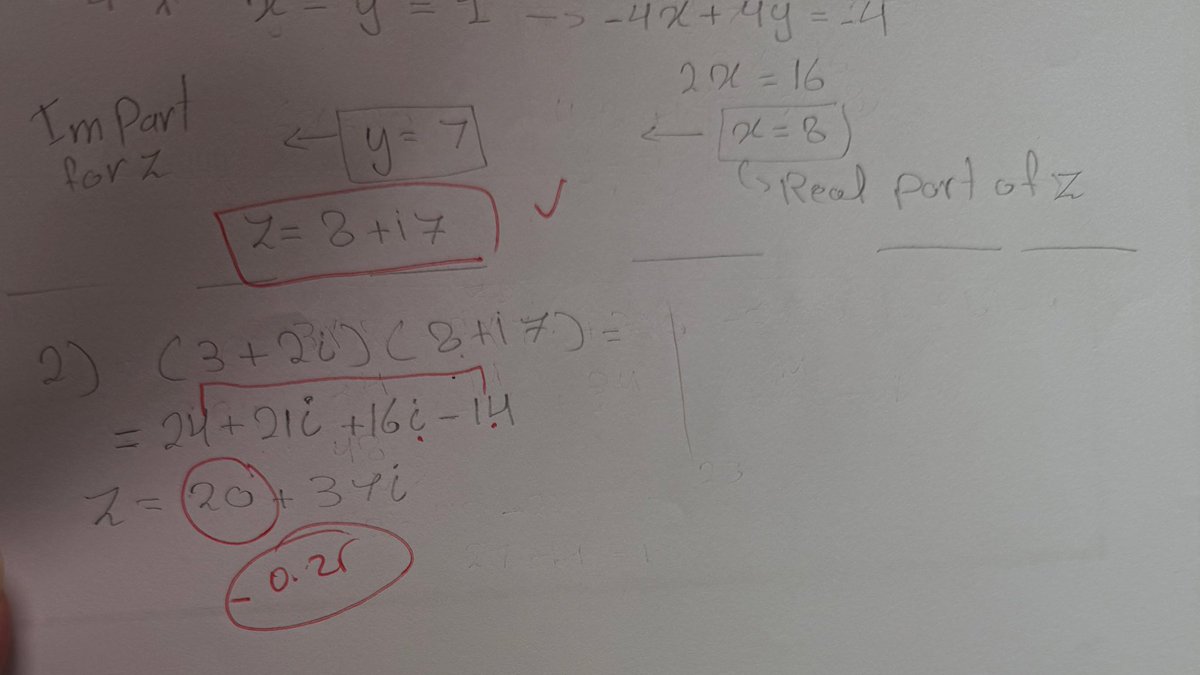 x - y = 1 -> -4x + 4y = -4
2x = 16
Im Part for z
← y = 7
← x = 8
Real part of z
z = 8 + i7 ✓
2) (3 + 2i)(8 + i7) =
= 24 + 21i + 16i - 14
z = 20 + 37i
- 0.25